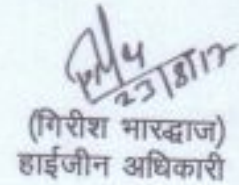 23/8/17
(गिरीश भारद्वाज)
हाईजीन अधिकारी